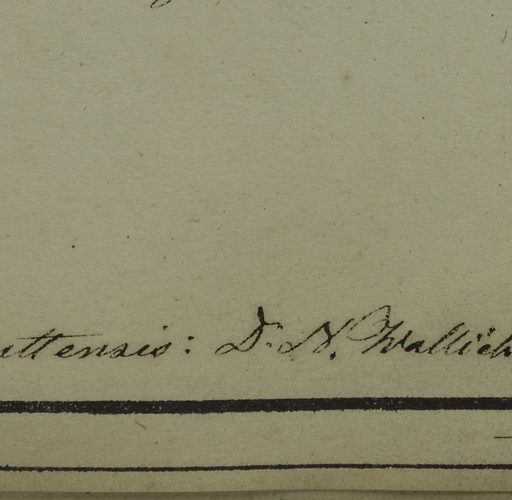 uttensis: D. N. Wallich